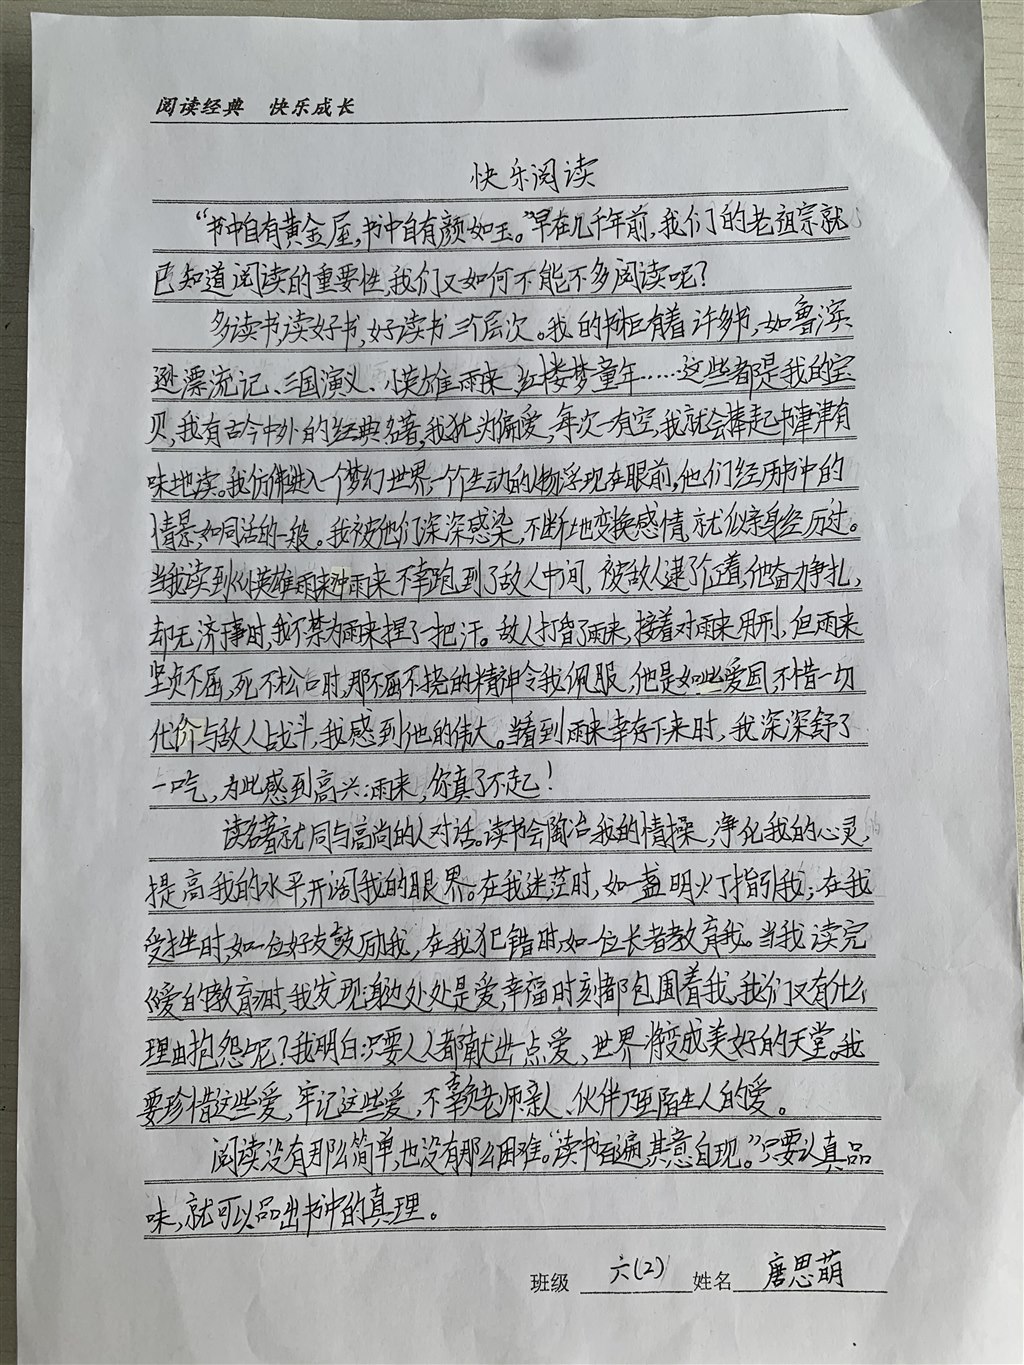 阅读经典 快乐成长
快乐阅读
“书中自有黄金屋，书中自有颜如玉。”早在几千年前，我们的老祖宗就
已知道阅读的重要性，我们又如何不能不多阅读呢？
多读书，读好书，好读书三个层次。我的书柜有着许多书，如鲁滨
逊漂流记、三国演义、小英雄雨来、红楼梦、童年……这些都是我的宝
贝，我有古今中外的经典名著，我犹为偏爱，每次一有空，我就会捧起书津津有
味地读。我仿佛进入一个梦幻世界，一个个生动的人物浮现在眼前，他们经历书中的
情景，如同活的一般。我被他们深深感染，不断地变换感情，就似亲身经历过。
当我读到《小英雄雨来》中雨来不幸跑到了敌人中间，被敌人逮了个正着，他奋力争扎，
却无济于事时，我不禁为雨来捏了一把汗。敌人打昏了雨来，接着对雨来用刑，但雨来
坚贞不屈，死不松口时，那不屈不挠的精神令我佩服，他是如此爱国，不惜一切
代价与敌人战斗，我感到他的伟大。当看到雨来幸存下来时，我深深舒了
一口气，为此感到高兴：雨来，你真了不起！
读名著就同与高尚的人对话。读书会陶冶我的情操，净化我的心灵，
提高我的水平，开阔我的眼界。在我迷茫时，如一盏明火丁指引我；在我
受挫时，如一位好友鼓励我，在我犯错时，如一位长者教育我。当我读完
《爱的教育》时，我发现身边处处是爱，幸福时刻都包围着我，我们又有什么
理由抱怨呢？我明白：只要人人都献出一点爱，世界将变成美好的天堂。我
要珍惜这些爱，牢记这些爱，不辜负老师、亲人、伙伴乃至陌生人的爱。
阅读没有那么简单，也没有那么困难。“读书百遍，其意自现。”只要认真品
味，就可以品出书中的真理。
班级 六(2) 姓名 唐思萌